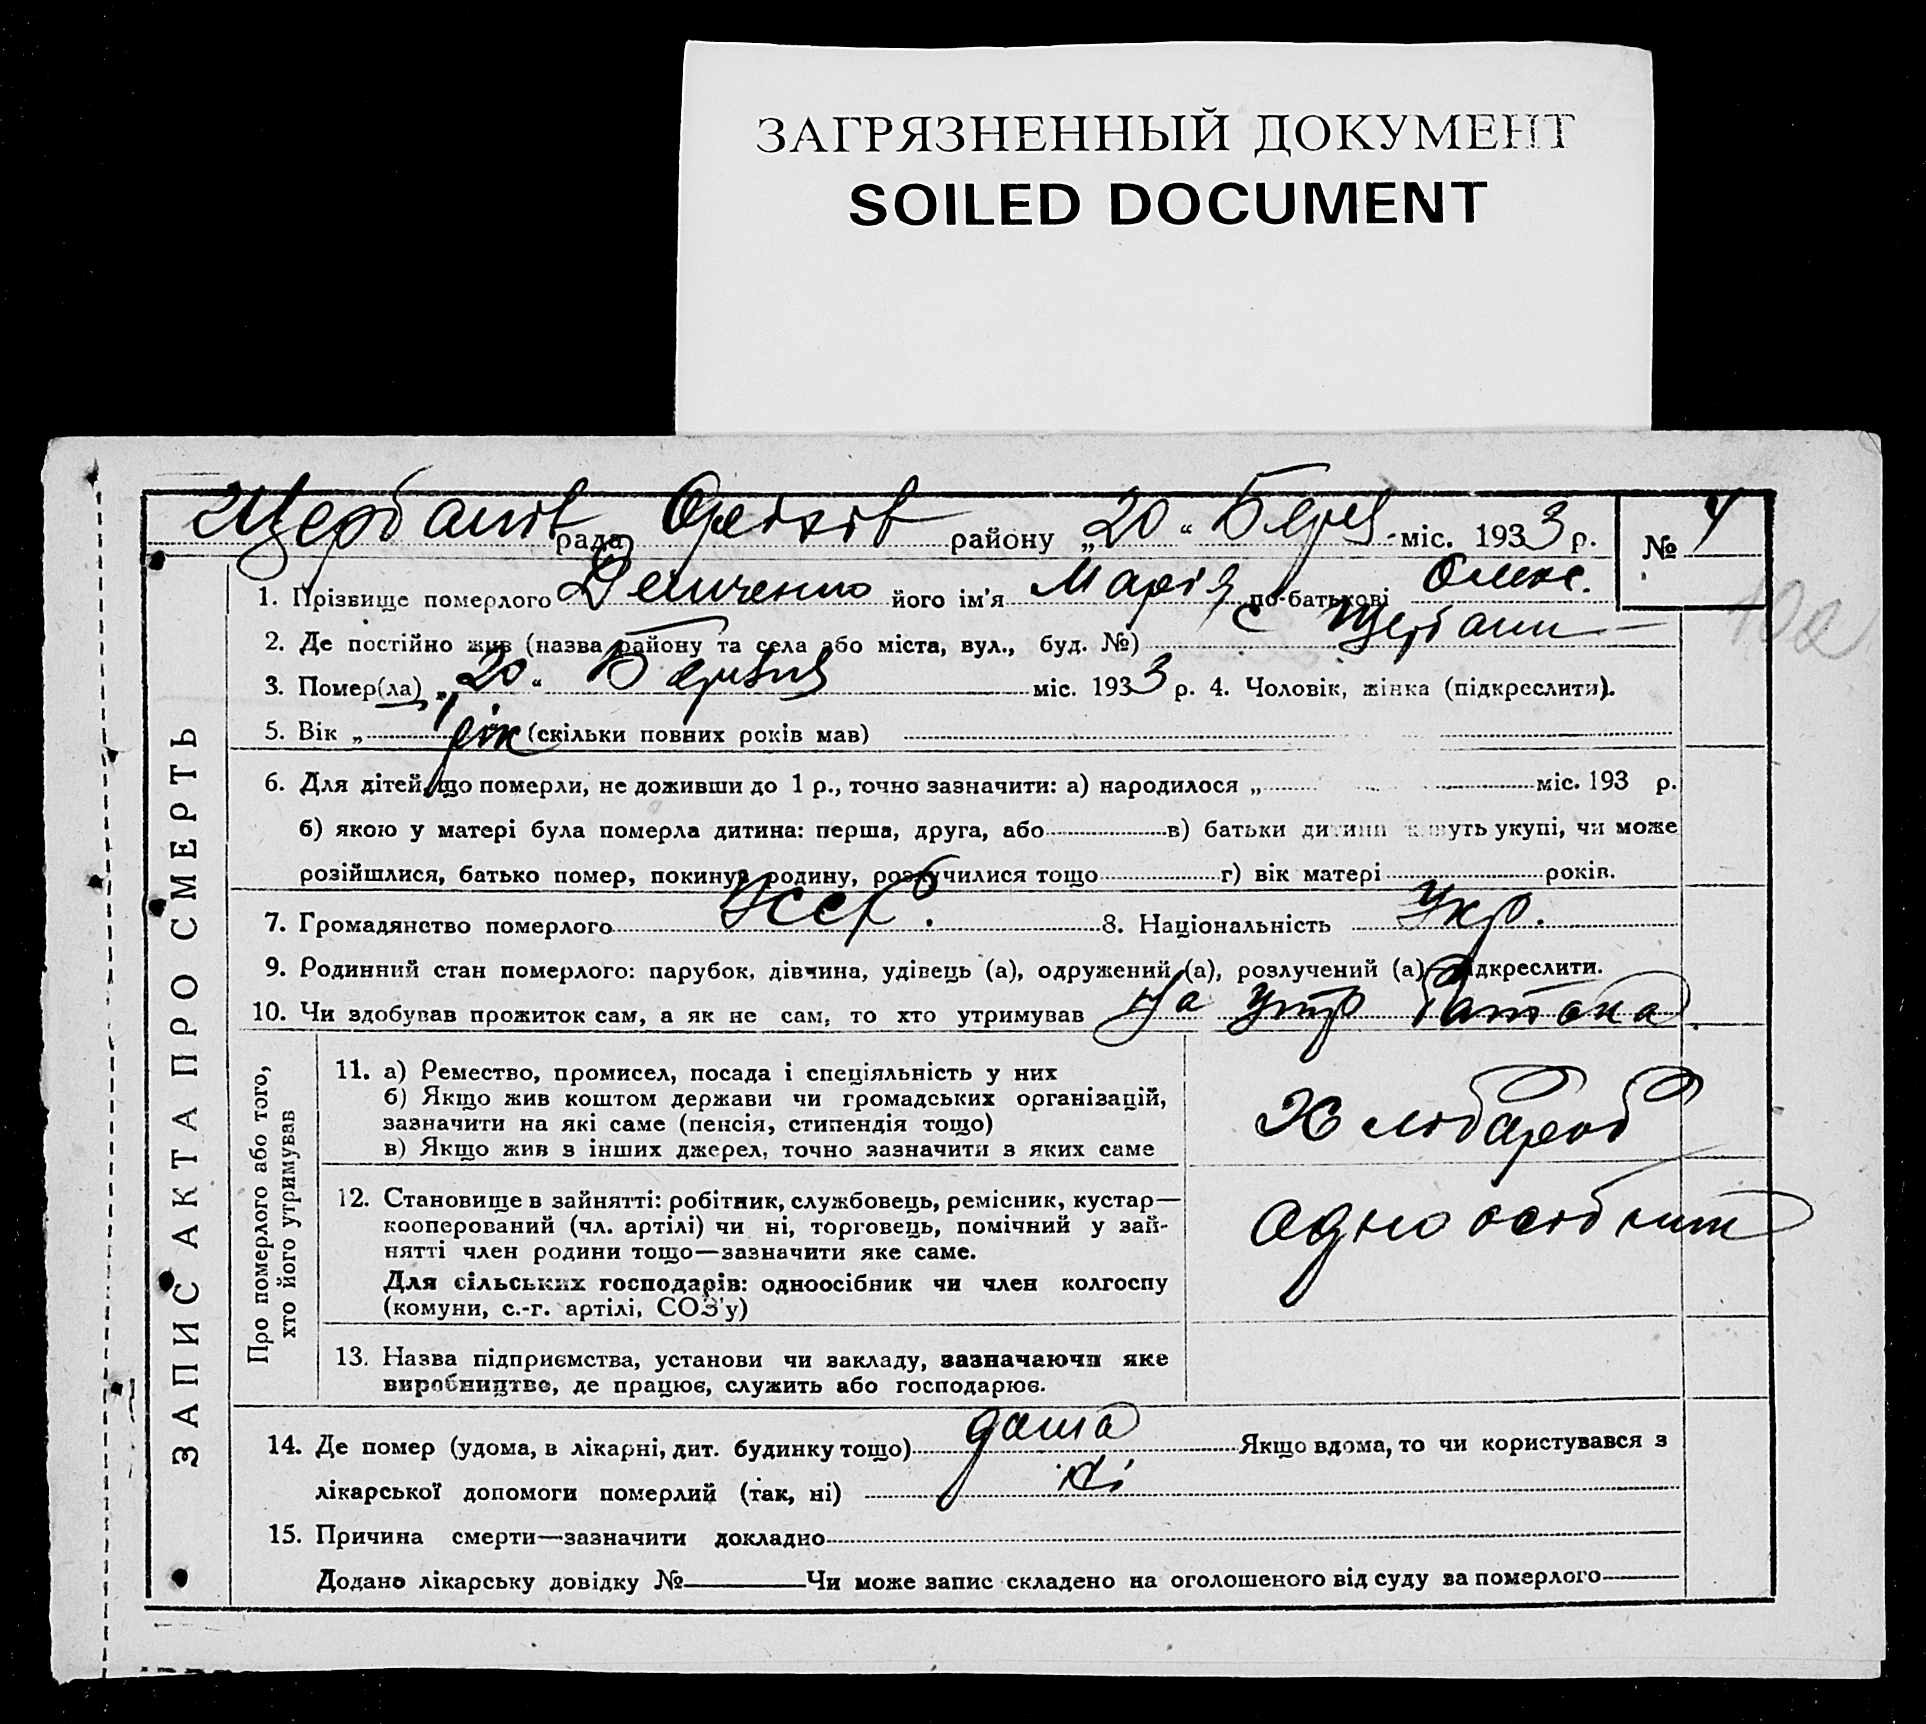 ЗАГРЯЗНЕННЫЙ ДОКУМЕНТ
SOILED DOCUMENT
Щербанів рада Оріхів району „20“ Берез міс. 1933 р. № 4
10а
1. Прізвище померлого Демченко його ім'я Марія по-батькові Олекс.
2. Де постійно жив (назва району та села або міста, вул., буд. №) с Щербани
3. Помер(ла) „20“ Березня міс. 1933 р. 4. Чоловік, жінка (підкреслити).
5. Вік „ 1 рік (скільки повних років мав)
6. Для дітей, що померли, не доживши до 1 р., точно зазначити: а) народилося „ міс. 193 р.
б) якою у матері була померла дитина: перша, друга, або в) батьки дитини живуть укупі, чи може
розійшлися, батько помер, покинув родину, розлучилися тощо г) вік матері років.
7. Громадянство померлого УССР. 8. Національність Укр.
9. Родинний стан померлого: парубок, дівчина, удівець (а), одружений (а), розлучений (а) підкреслити.
10. Чи здобував прожиток сам, а як не сам, то хто утримував На утр батька
ЗАПИС АКТА ПРО СМЕРТЬ
Про померлого або того,
хто його утримував
11. а) Ремество, промисел, посада і спеціяльність у них
б) Якщо жив коштом держави чи громадських організацій,
зазначити на які саме (пенсія, стипендія тощо)
в) Якщо жив з інших джерел, точно зазначити з яких саме
Хлібороб
12. Становище в зайнятті: робітник, службовець, ремісник, кустар—
кооперований (чл. артілі) чи ні, торговець, помічний у зай-
нятті член родини тощо—зазначити яке саме.
Для сільських господарів: одноосібник чи член колгоспу
(комуни, с.-г. артілі, СОЗ'у)
одноосібник
13. Назва підприємства, установи чи закладу, зазначаючи яке
виробництво, де працює, служить або господарює.
14. Де помер (удома, в лікарні, дит. будинку тощо) дома Якщо вдома, то чи користувався з
лікарської допомоги померлий (так, ні) ні
15. Причина смерти—зазначити докладно
Додано лікарську довідку № Чи може запис складено на оголошеного від суду за померлого